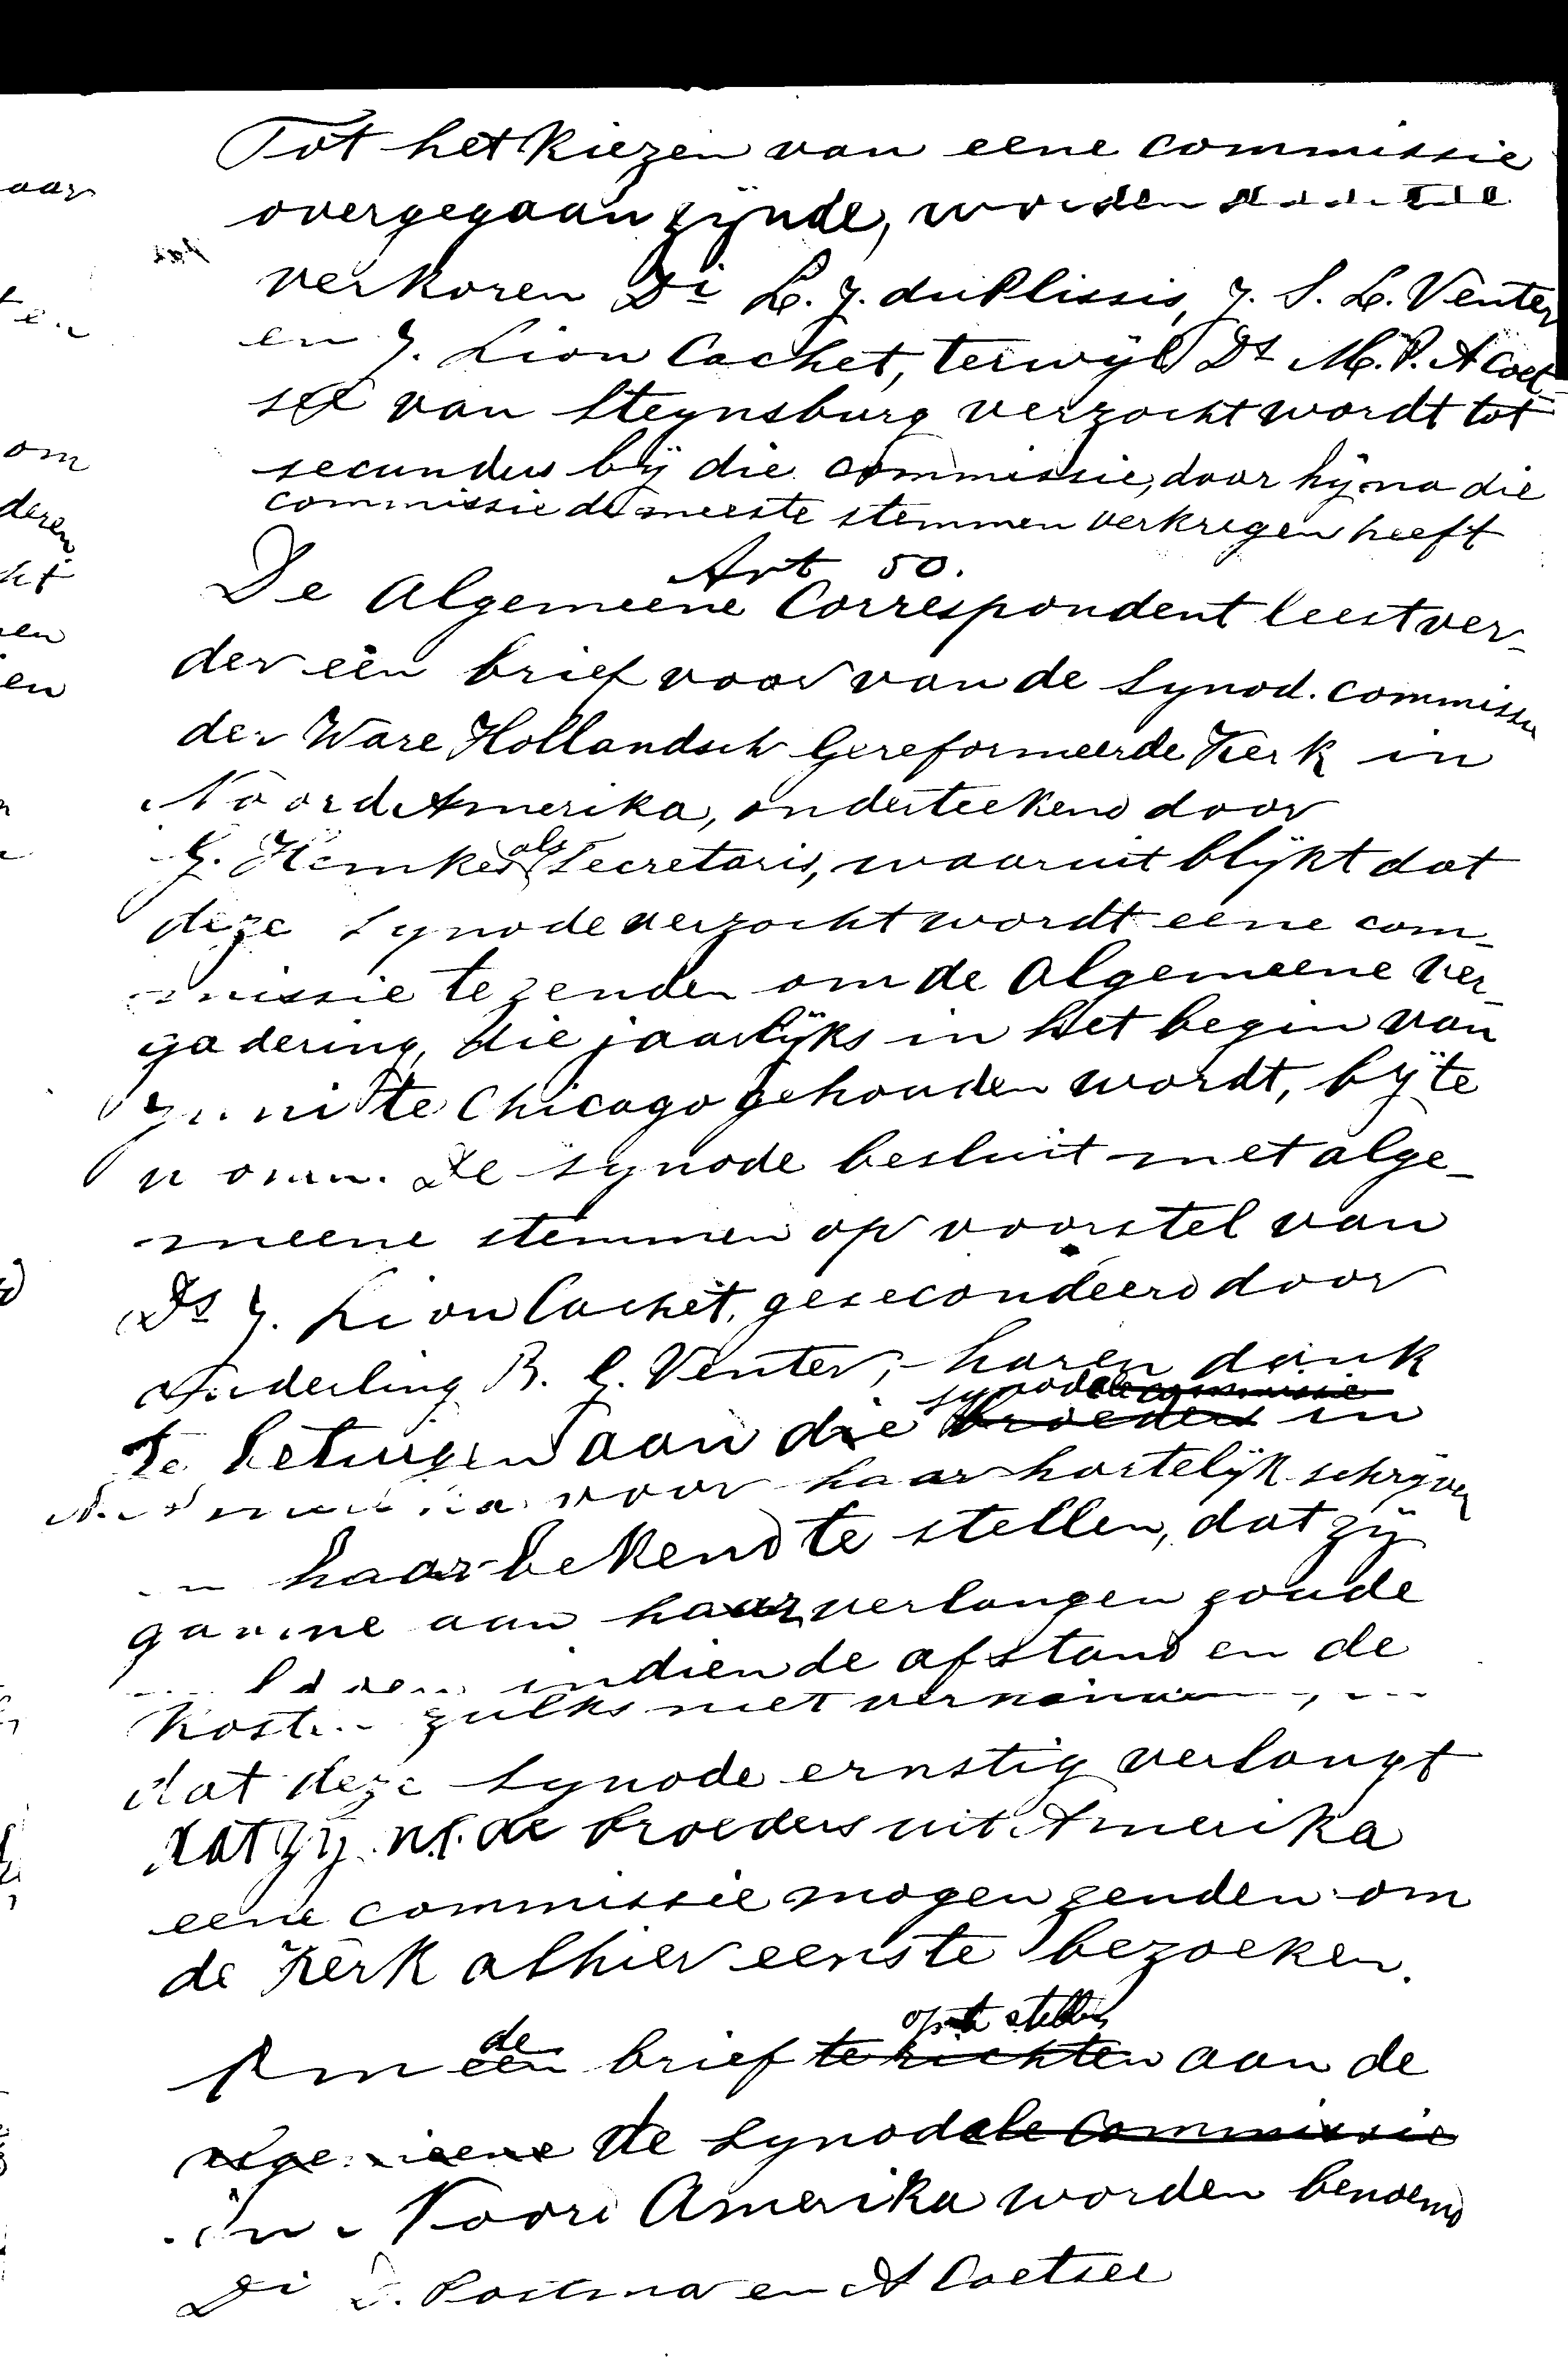 Tot het kiezen van eene commissie
overgegaan zijnde, worden
verkoren Di L. J. du Plissis, J. S. L. Venter
en J. Lion Cachet, terwijl Ds M. P. A Coet-
see van Steynsburg verzocht wordt tot
secundus bij die commissie, daar hij na die
commissie de meeste stemmen verkregen heeft
Art 50.
De Algemeene Correspondent leest ver-
der een brief voor van de Synod. commissie
der Ware Hollandsch Gereformeerde Kerk in
Noord Amerika, onderteekend door
G. Hemkes als Secretaris, waaruit blijkt dat
deze Synode verzocht wordt eene com-
missie te zenden om de Algemeene Ver-
gadering, die jaarlijks in het begin van
Juni te Chicago gehouden wordt, bij te
wonen. De Synode besluit met alge-
meene stemmen op voorstel van
Ds J. Lion Cachet, gesecondeerd door
Ouderling B. G. Venter, haren dank
synodale commissie
te betuigen aan die broeders in
N. Amerika voor haar hartelijk schrijven
en haar bekend te stellen, dat zij
gaarne aan haar verlangen zoude
voldoen indien de afstand en de
Kosten zulks niet
dat deze Synode ernstig verlangt
dat zij n.l. de broeders uit Amerika
eene commissie mogen zenden om
de Kerk alhier eens te bezoeken.
de op te stellen
Om een brief te richten aan de
algemeene de Synodale Commissie
in Noord Amerika worden benoemd
Di D. Postma en A Coetsee